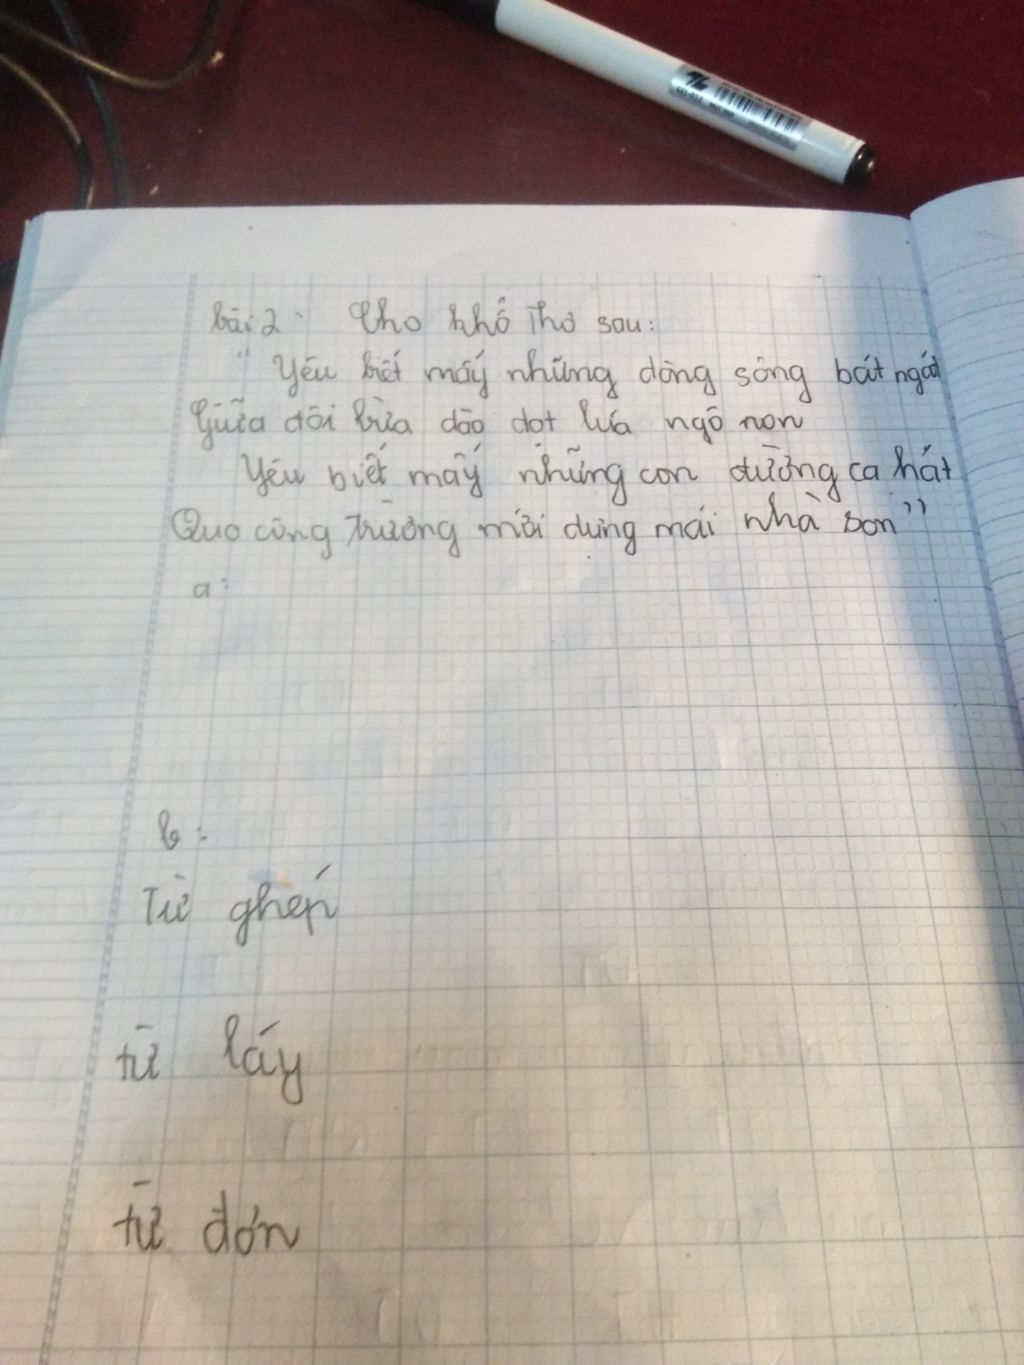 bài 2: Cho khổ thơ sau:
" Yêu biết mấy những dòng sông bát ngát
Giữa đôi bờ dào dạt lúa ngô non
Yêu biết mấy những con đường ca hát
Qua công trường mới dựng mái nhà son"
a:
b:
Từ ghép
từ láy
từ đơn